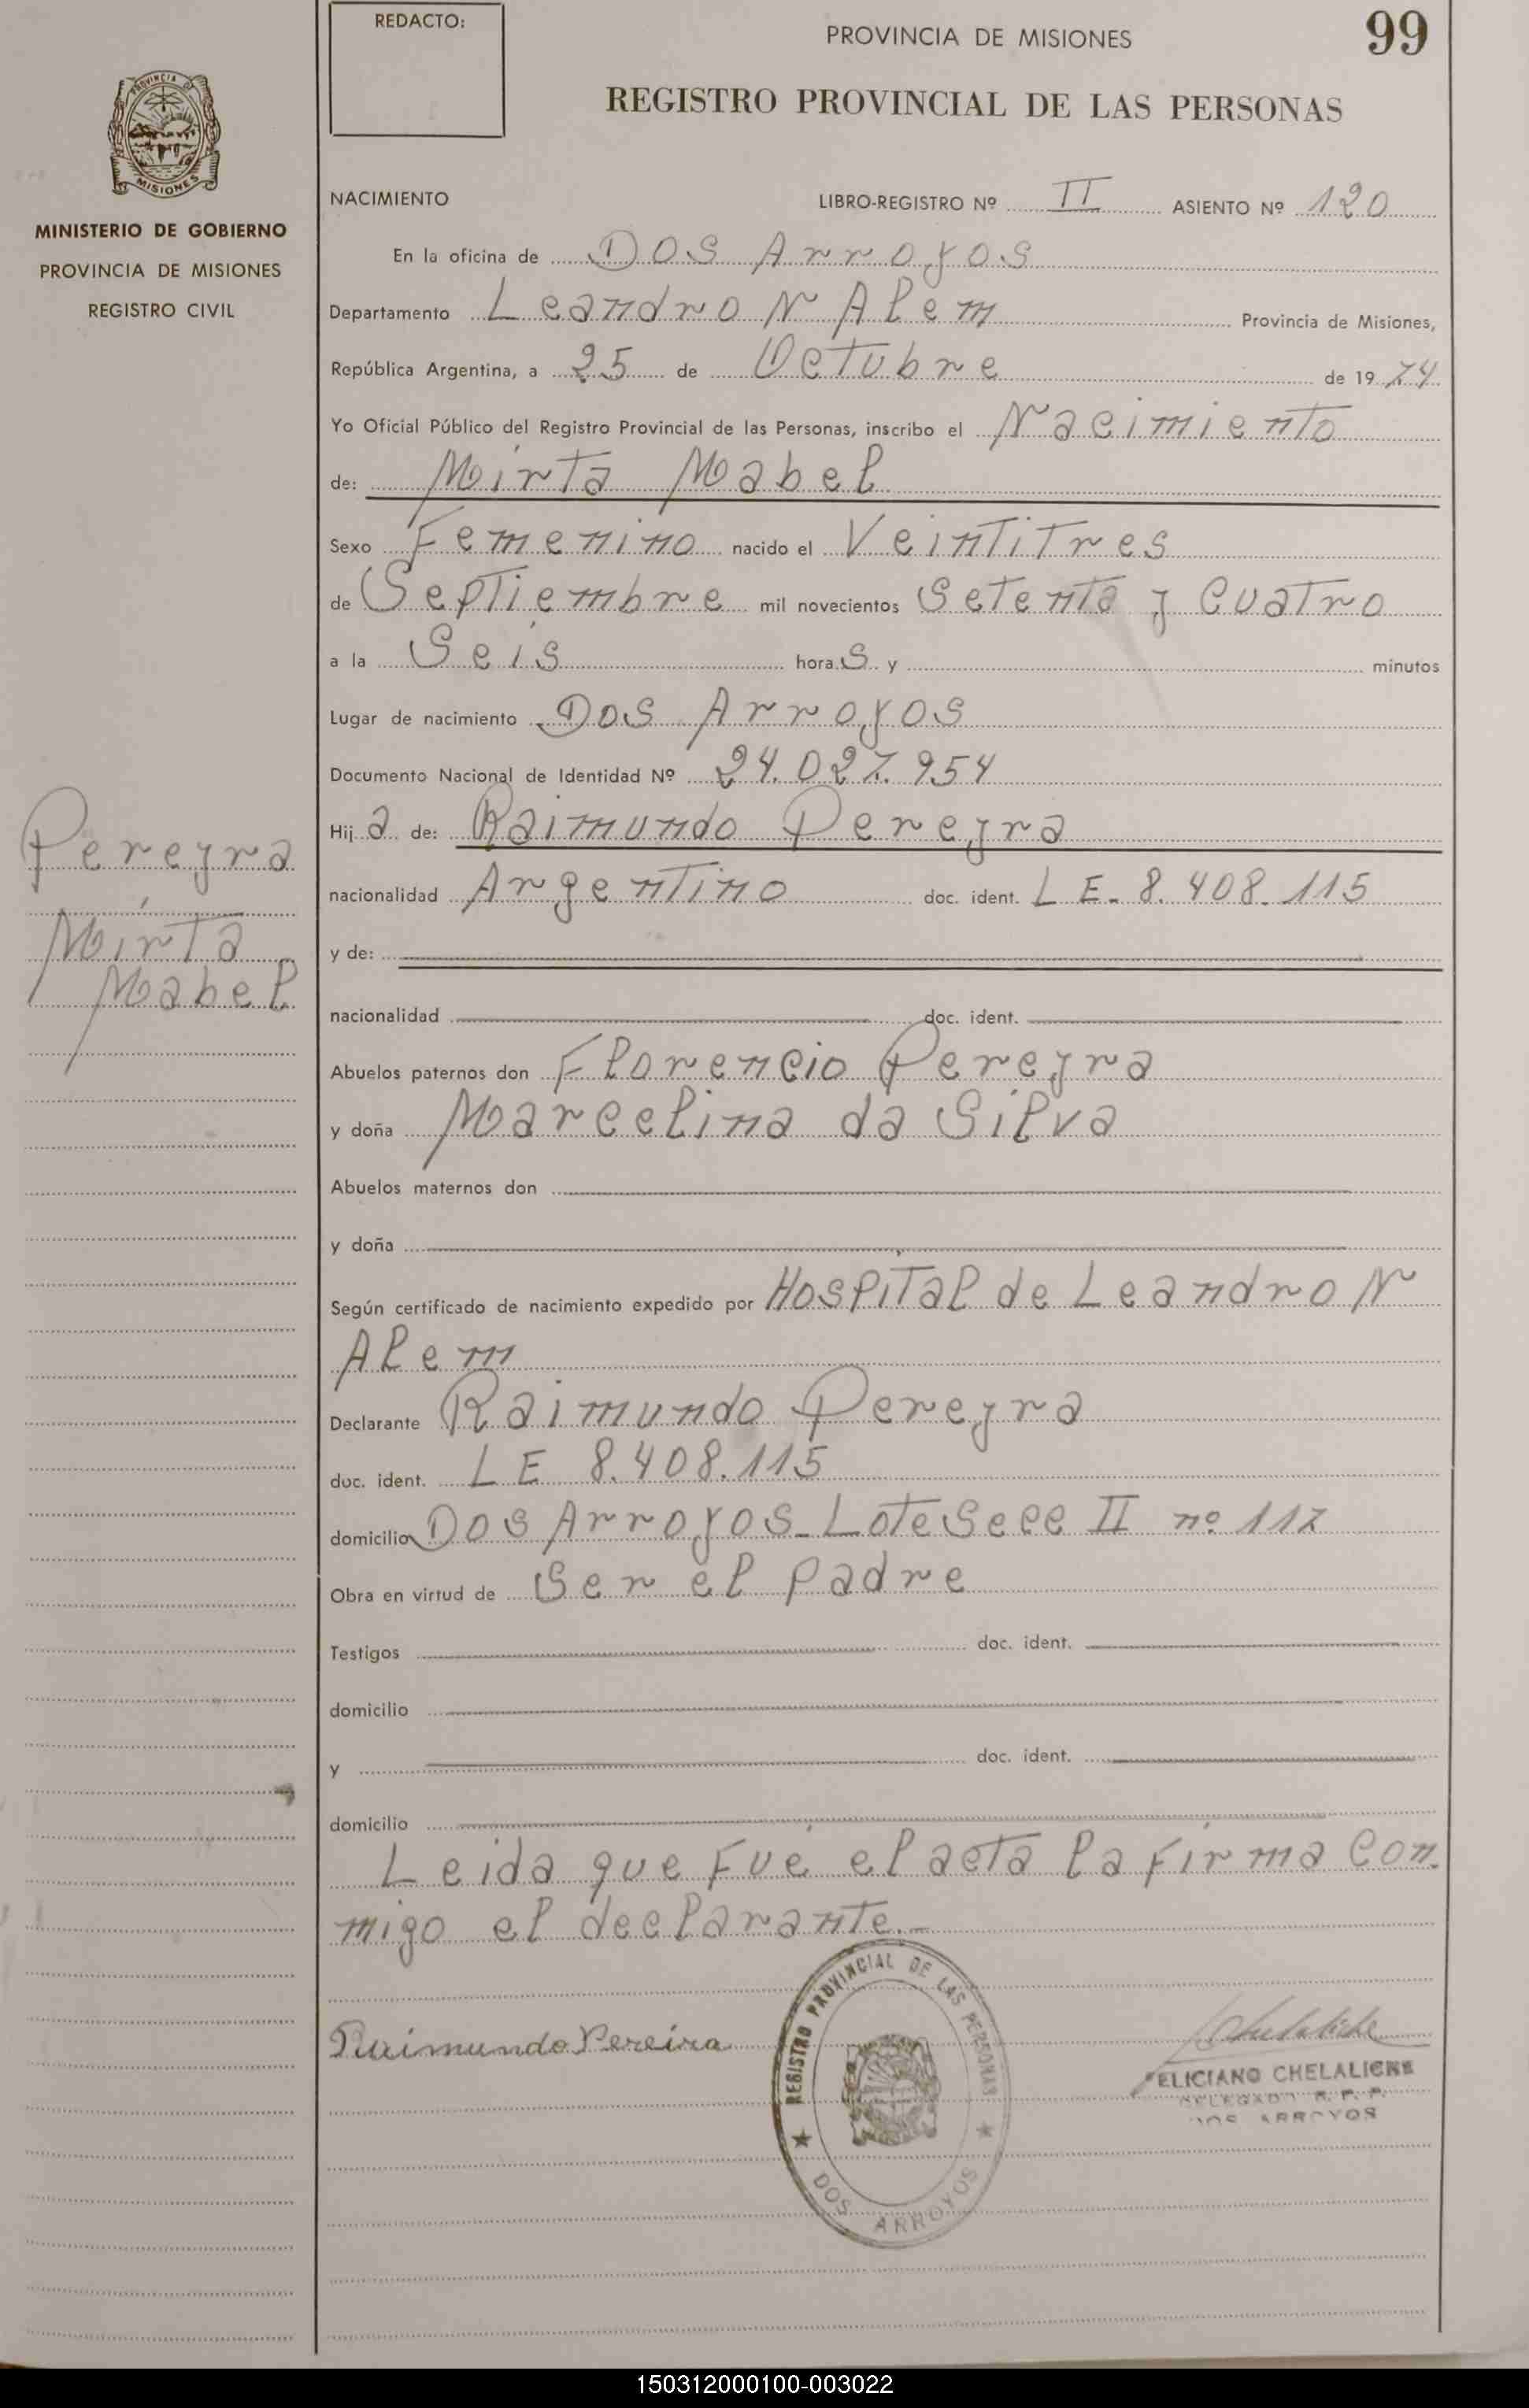 REDACTO:
PROVINCIA DE MISIONES
99
REGISTRO PROVINCIAL DE LAS PERSONAS
PROVINCIA
MISIONES
MINISTERIO DE GOBIERNO
PROVINCIA DE MISIONES
REGISTRO CIVIL
NACIMIENTO LIBRO-REGISTRO Nº II ASIENTO Nº 120
En la oficina de Dos Arroyos
Departamento Leandro N Alem Provincia de Misiones,
República Argentina, a 25 de Octubre de 1974
Yo Oficial Público del Registro Provincial de las Personas, inscribo el Nacimiento
de: Mirta Mabel
Sexo Femenino nacido el Veintitres
de Septiembre mil novecientos Setenta y Cuatro
a la Seis horas y minutos
Lugar de nacimiento Dos Arroyos
Documento Nacional de Identidad Nº 24.027.954
Hija de: Raimundo Pereyra
nacionalidad Argentino doc. ident. LE-8.408.115
y de:
nacionalidad doc. ident.
Abuelos paternos don Florencio Pereyra
y doña Marcelina da Silva
Abuelos maternos don
y doña
Según certificado de nacimiento expedido por Hospital de Leandro N
Alem
Declarante Raimundo Pereyra
doc. ident. LE 8.408.115
domicilio Dos Arroyos-Lote Secc II nº 117
Obra en virtud de Ser el padre
Testigos doc. ident.
domicilio
y doc. ident.
domicilio
Leida que fué el acta la firma con
migo el declarante.-
Pereyra
Mirta
Mabel
Raimundo Pereira
REGISTRO PROVINCIAL DE LAS PERSONAS
DOS ARROYOS
FELICIANO CHELALICHE
DELEGADO R. P. P.
DOS ARROYOS
150312000100-003022